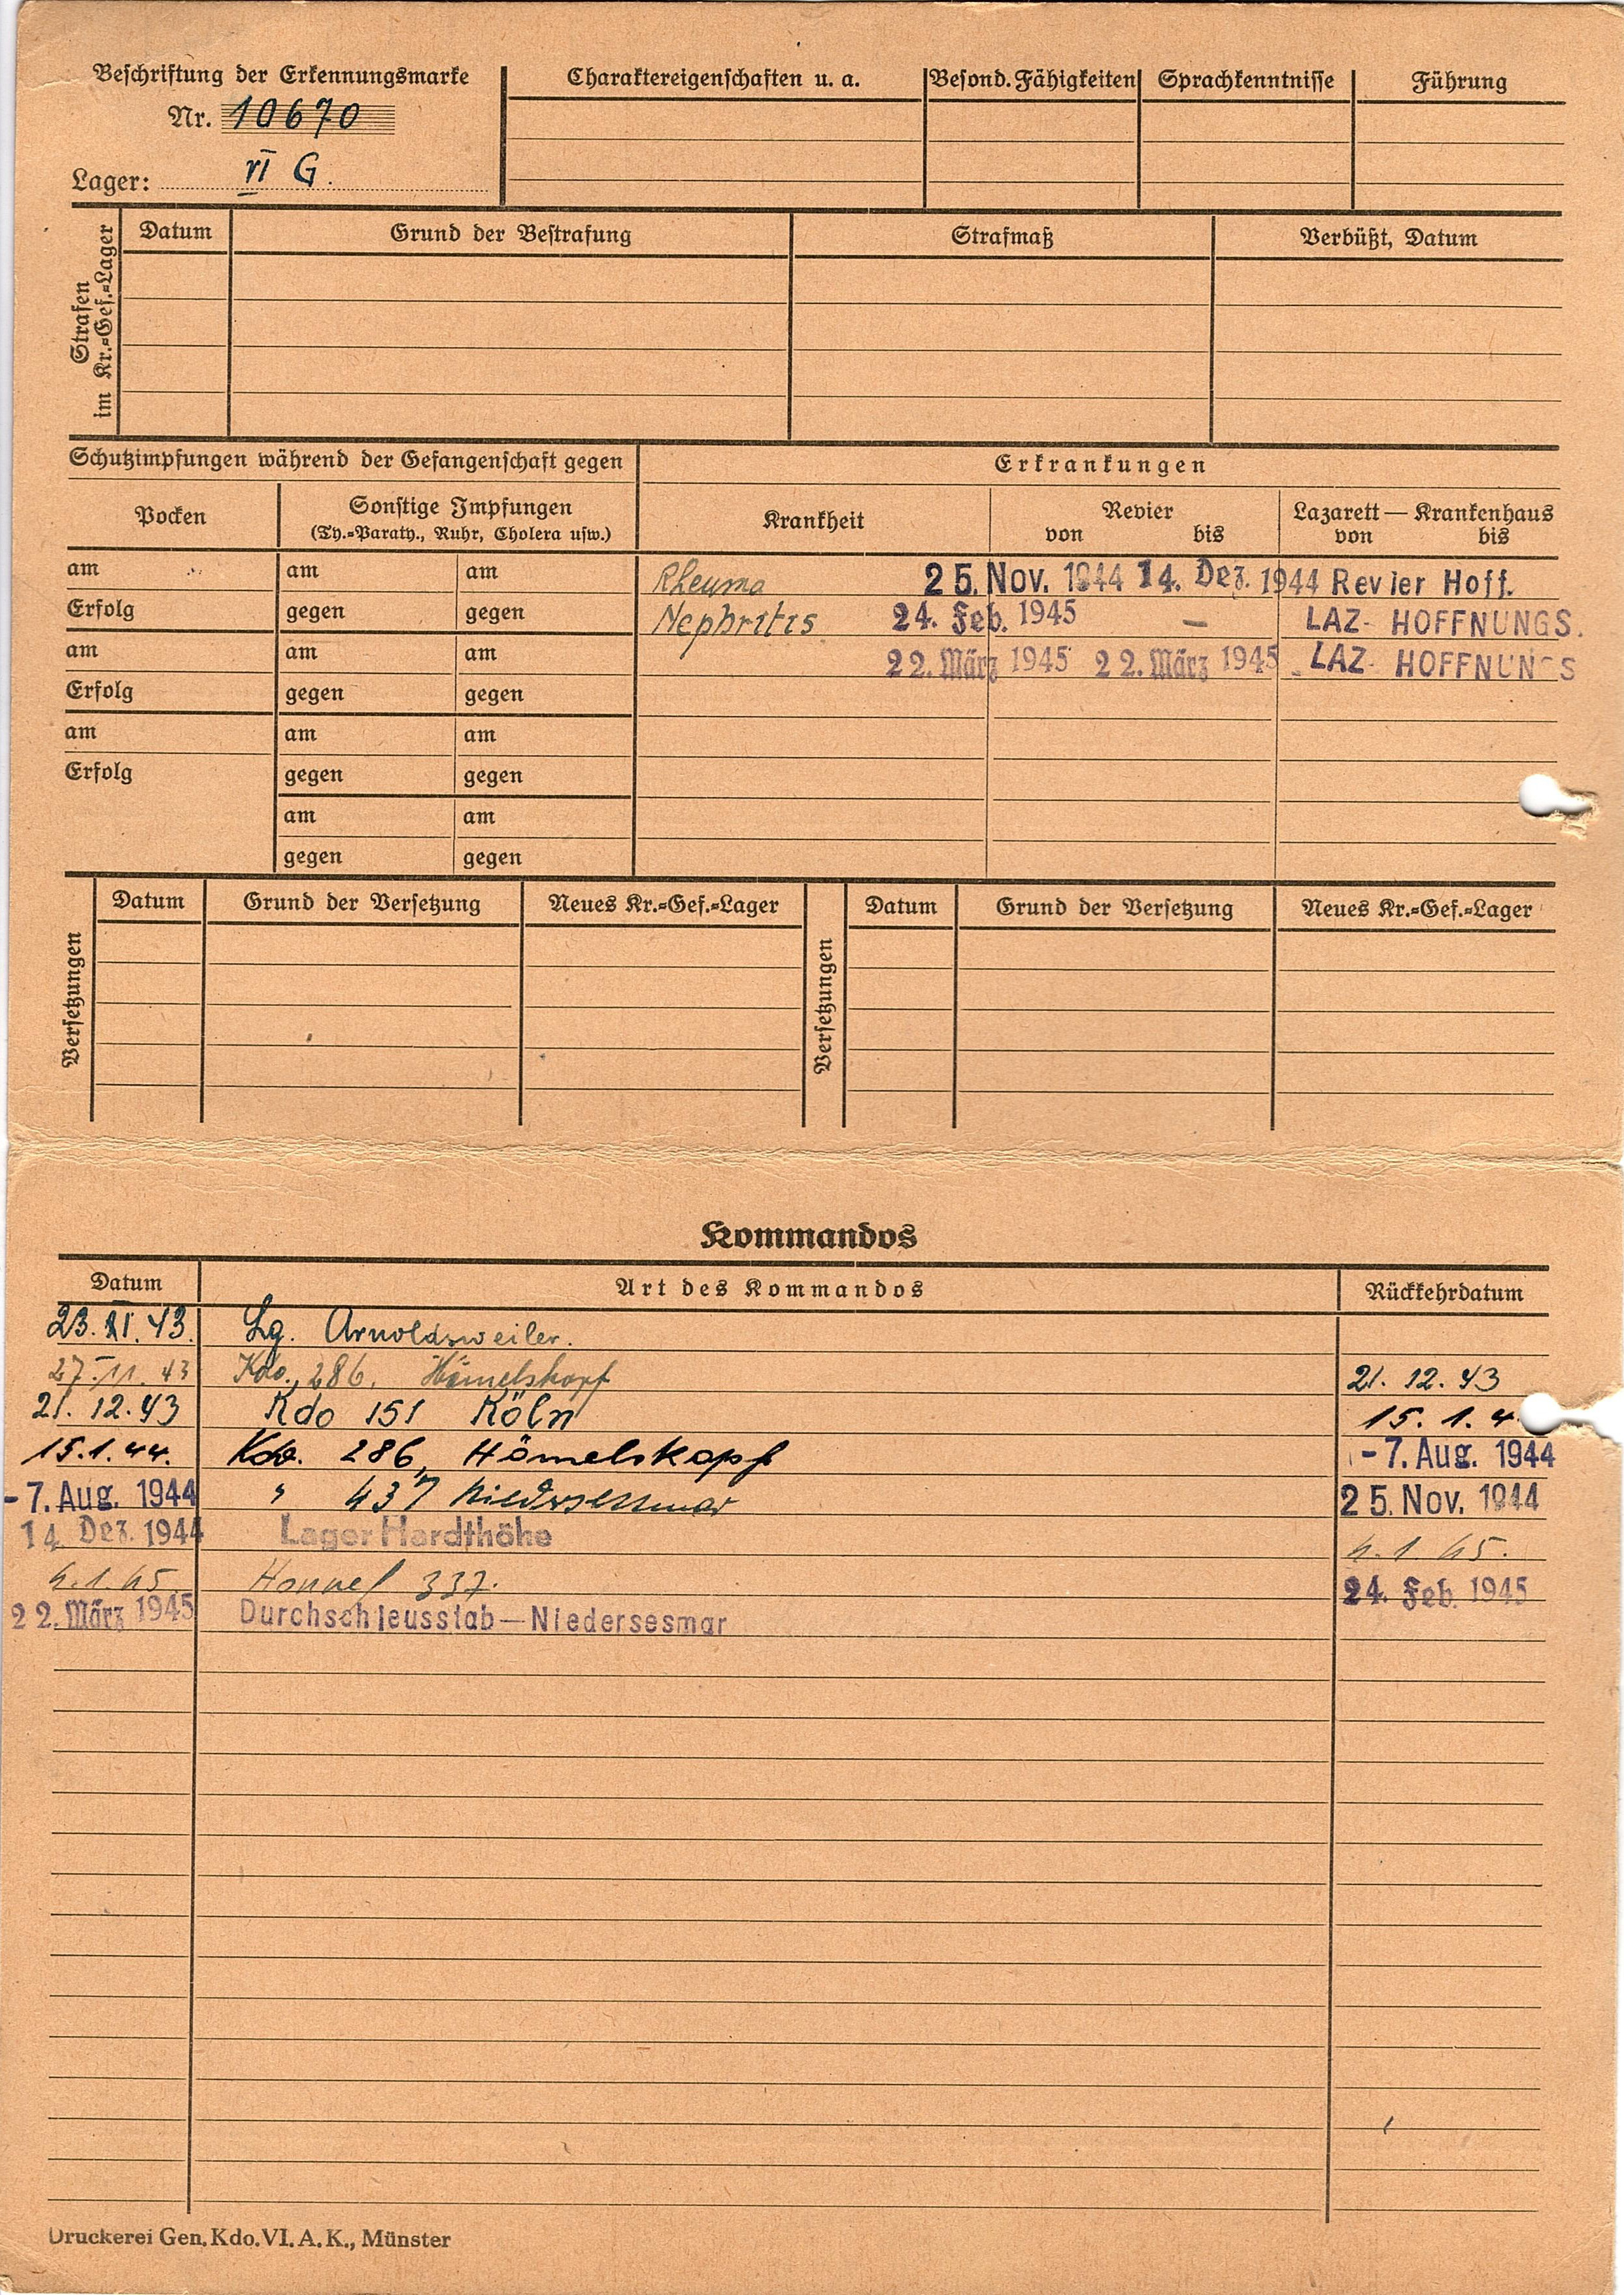 Beschriftung der Erkennungsmarke
Nr. 10670
Lager: VI G.
Charaktereigenschaften u. a. Besond. Fähigkeiten Sprachkenntnisse Führung
Strafen
im Kr.=Gef.=Lager
Datum Grund der Bestrafung Strafmaß Verbüßt, Datum
Schutzimpfungen während der Gefangenschaft gegen
Erkrankungen
Pocken
Sonstige Impfungen
(Ty.=Paraty., Ruhr, Cholera usw.)
Krankheit
Revier
von bis
Lazarett — Krankenhaus
von bis
am am am Rheuma 25. Nov. 1944 14. Dez. 1944 Revier Hoff.
Erfolg gegen gegen Nephritis 24. Feb. 1945 – LAZ- HOFFNUNGS.
am am am 22. März 1945 22. März 1945 LAZ- HOFFNUNGS
Erfolg gegen gegen
am am am
Erfolg gegen gegen
am am
gegen gegen
Versetzungen
Datum Grund der Versetzung Neues Kr.=Gef.=Lager
Versetzungen
Datum Grund der Versetzung Neues Kr.=Gef.=Lager
Kommandos
Datum Art des Kommandos Rückkehrdatum
23. XI. 43. Lg. Arnoldsweiler.
27. 11. 43 Kdo. 286. Hömelskopf 21. 12. 43
21. 12. 43 Kdo 151 Köln 15. 1. 4
15. 1. 44. Kdo. 286, Hömelskopf -7. Aug. 1944
-7. Aug. 1944 " 437 Niedersessmar 25. Nov. 1944
14. Dez. 1944 Lager Hardthöhe 4. 1. 45.
4. 1. 45 Honnef 337. 24. Feb. 1945
22. März 1945 Durchschleusstab—Niedersesmar
Druckerei Gen. Kdo. VI. A. K., Münster